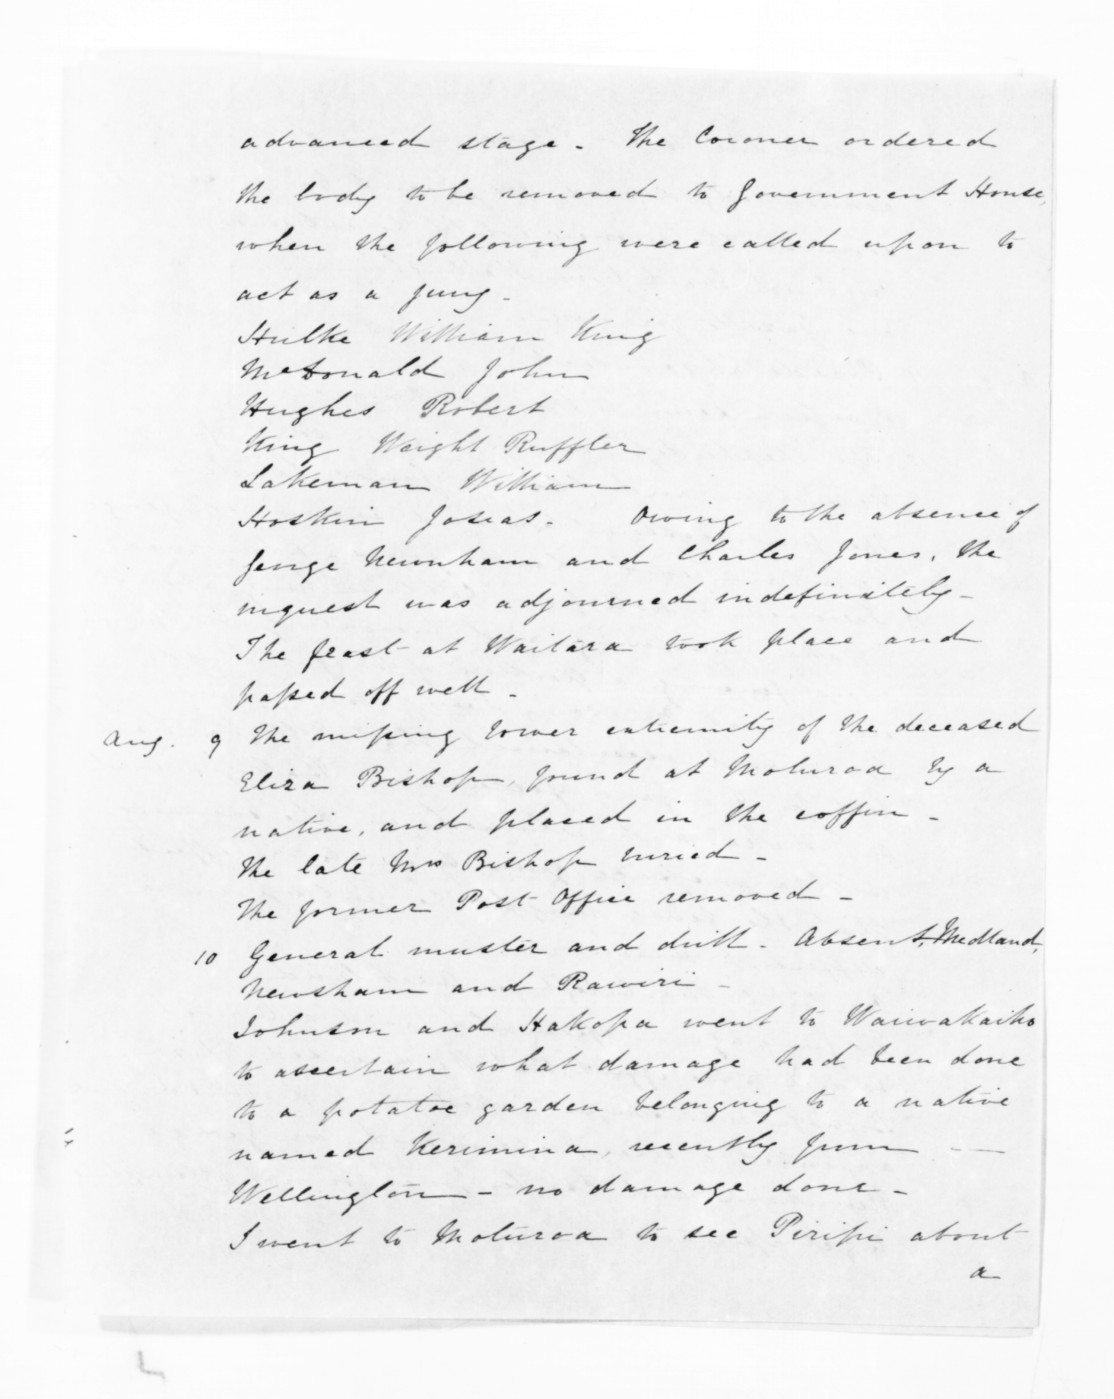 advanced stage. The Coroner ordered
the body to be removed to Government House,
when the following were called upon to
act as a jury.
Hulke William King
McDonald John
Hughes Robert
King Weight Ruffler
Lakeman William
Hoskin Josias. Owing to the absence of
George Newnham and Charles Jones, the
inquest was adjourned indefinitely -
The feast at Waitara took place and
passed off well.
Aug. 9 The missing lower extremity of the deceased
Eliza Bishop, found at Moturoa by a
native, and placed in the coffin -
The late Mrs Bishop buried -
The former Post Office removed -
10 General muster and drill. Absent, Medland,
Newsham and Rawiri -
Johnson and Hakopa went to Waiwakaiho
to ascertain what damage had been done
to a potatoe garden belonging to a native
named Kerimina, recently from
Wellington - no damage done -
I went to Moturoa to see Piripi about
a